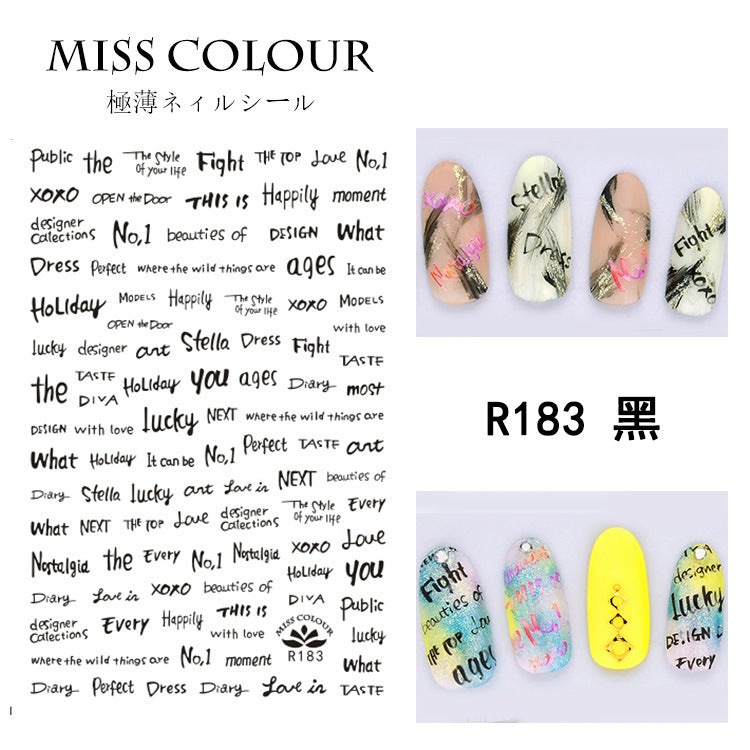 MISS COLOUR
極薄ネイルシール
Public the The Style Of your life Fight THE TOP Love No,1
XOXO OPEN the Door THIS IS Happily moment
designer Calections No,1 beauties of DESIGN What
Dress Perfect where the wild things are ages It can be
HoLIday MODELS Happily The Style Of your life XOXO MODELS
OPEN the Door with love
lucky designer art Stella Dress Fight
TASTE
the TASTE DIVA HoLIday you ages Diary most
DESIGN with love lucky NEXT where the wild things are
What HoLIday It can be No,1 Perfect TASTE art
Diary Stella lucky art Love in NEXT beauties of
What NEXT THE TOP Love designer Calections The Style Of your life Every
Nostalgia the Every No,1 Nostalgia XOXO Love
HoLIday you
Diary Love in XOXO beauties of DIVA
designer Calections Every Happily THIS IS Public
with love MISS COLOUR lucky
where the wild things are No,1 moment R183 What
Diary Perfect Dress Diary Love in TASTE
XOXO
Nostalgia
Stella
Dress
Fight
XOXO
R183 黑
Fight
beauties of
THE TOP Love
ages
No,1
designer
lucky
DESIGN D
Every